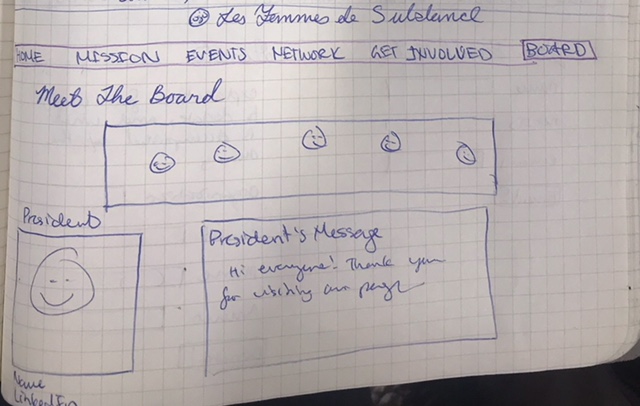 Les Femmes de Substance
HOME MISSION EVENTS NETWORK GET INVOLVED BOARD
Meet The Board
President
President's Message
Hi everyone! Thank you
for visiting our page
Name
LinkedIn